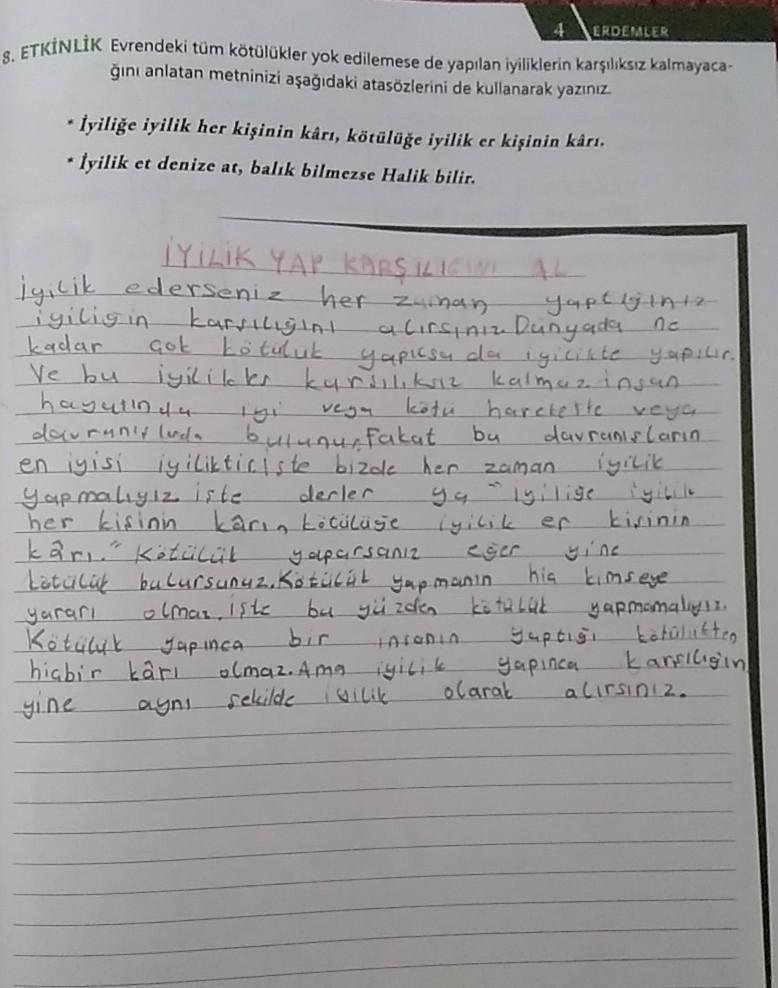 4 ERDEMLER
8. ETKİNLİK Evrendeki tüm kötülükler yok edilemese de yapılan iyiliklerin karşılıksız kalmayaca-
ğını anlatan metninizi aşağıdaki atasözlerini de kullanarak yazınız.
* İyiliğe iyilik her kişinin kârı, kötülüğe iyilik er kişinin kârı.
* İyilik et denize at, balık bilmezse Halik bilir.
İYİLİK YAP KARŞILIĞINI AL
iyilik ederseniz her zaman yaptığınız
iyiliğin karşılığını alırsınız. Dünyada ne
kadar çok kötülük yapılsa da iyilikte yapılır.
Ve bu iyilikler karşılıksız kalmaz insan
hayatında iyi veya kötü harekette veya
davranışlarda bulunur Fakat bu davranışların
en iyisi iyiliktir İşte bizde her zaman iyilik
yapmalıyız. işte derler ya "iyiliğe iyilik
her kişinin kârı, kötülüğe iyilik er kişinin
kârı." Kötülük yaparsanız eğer yine
kötülük bulursunuz. Kötülük yapmanın hiç kimseye
yararı olmaz. işte bu yüzden kötülük yapmamalıyız.
Kötülük yapınca bir insanın yaptığı kötülükten
hiçbir kârı olmaz. Ama iyilik yapınca karşılığın
yine aynı şekilde iyilik olarak alırsınız.